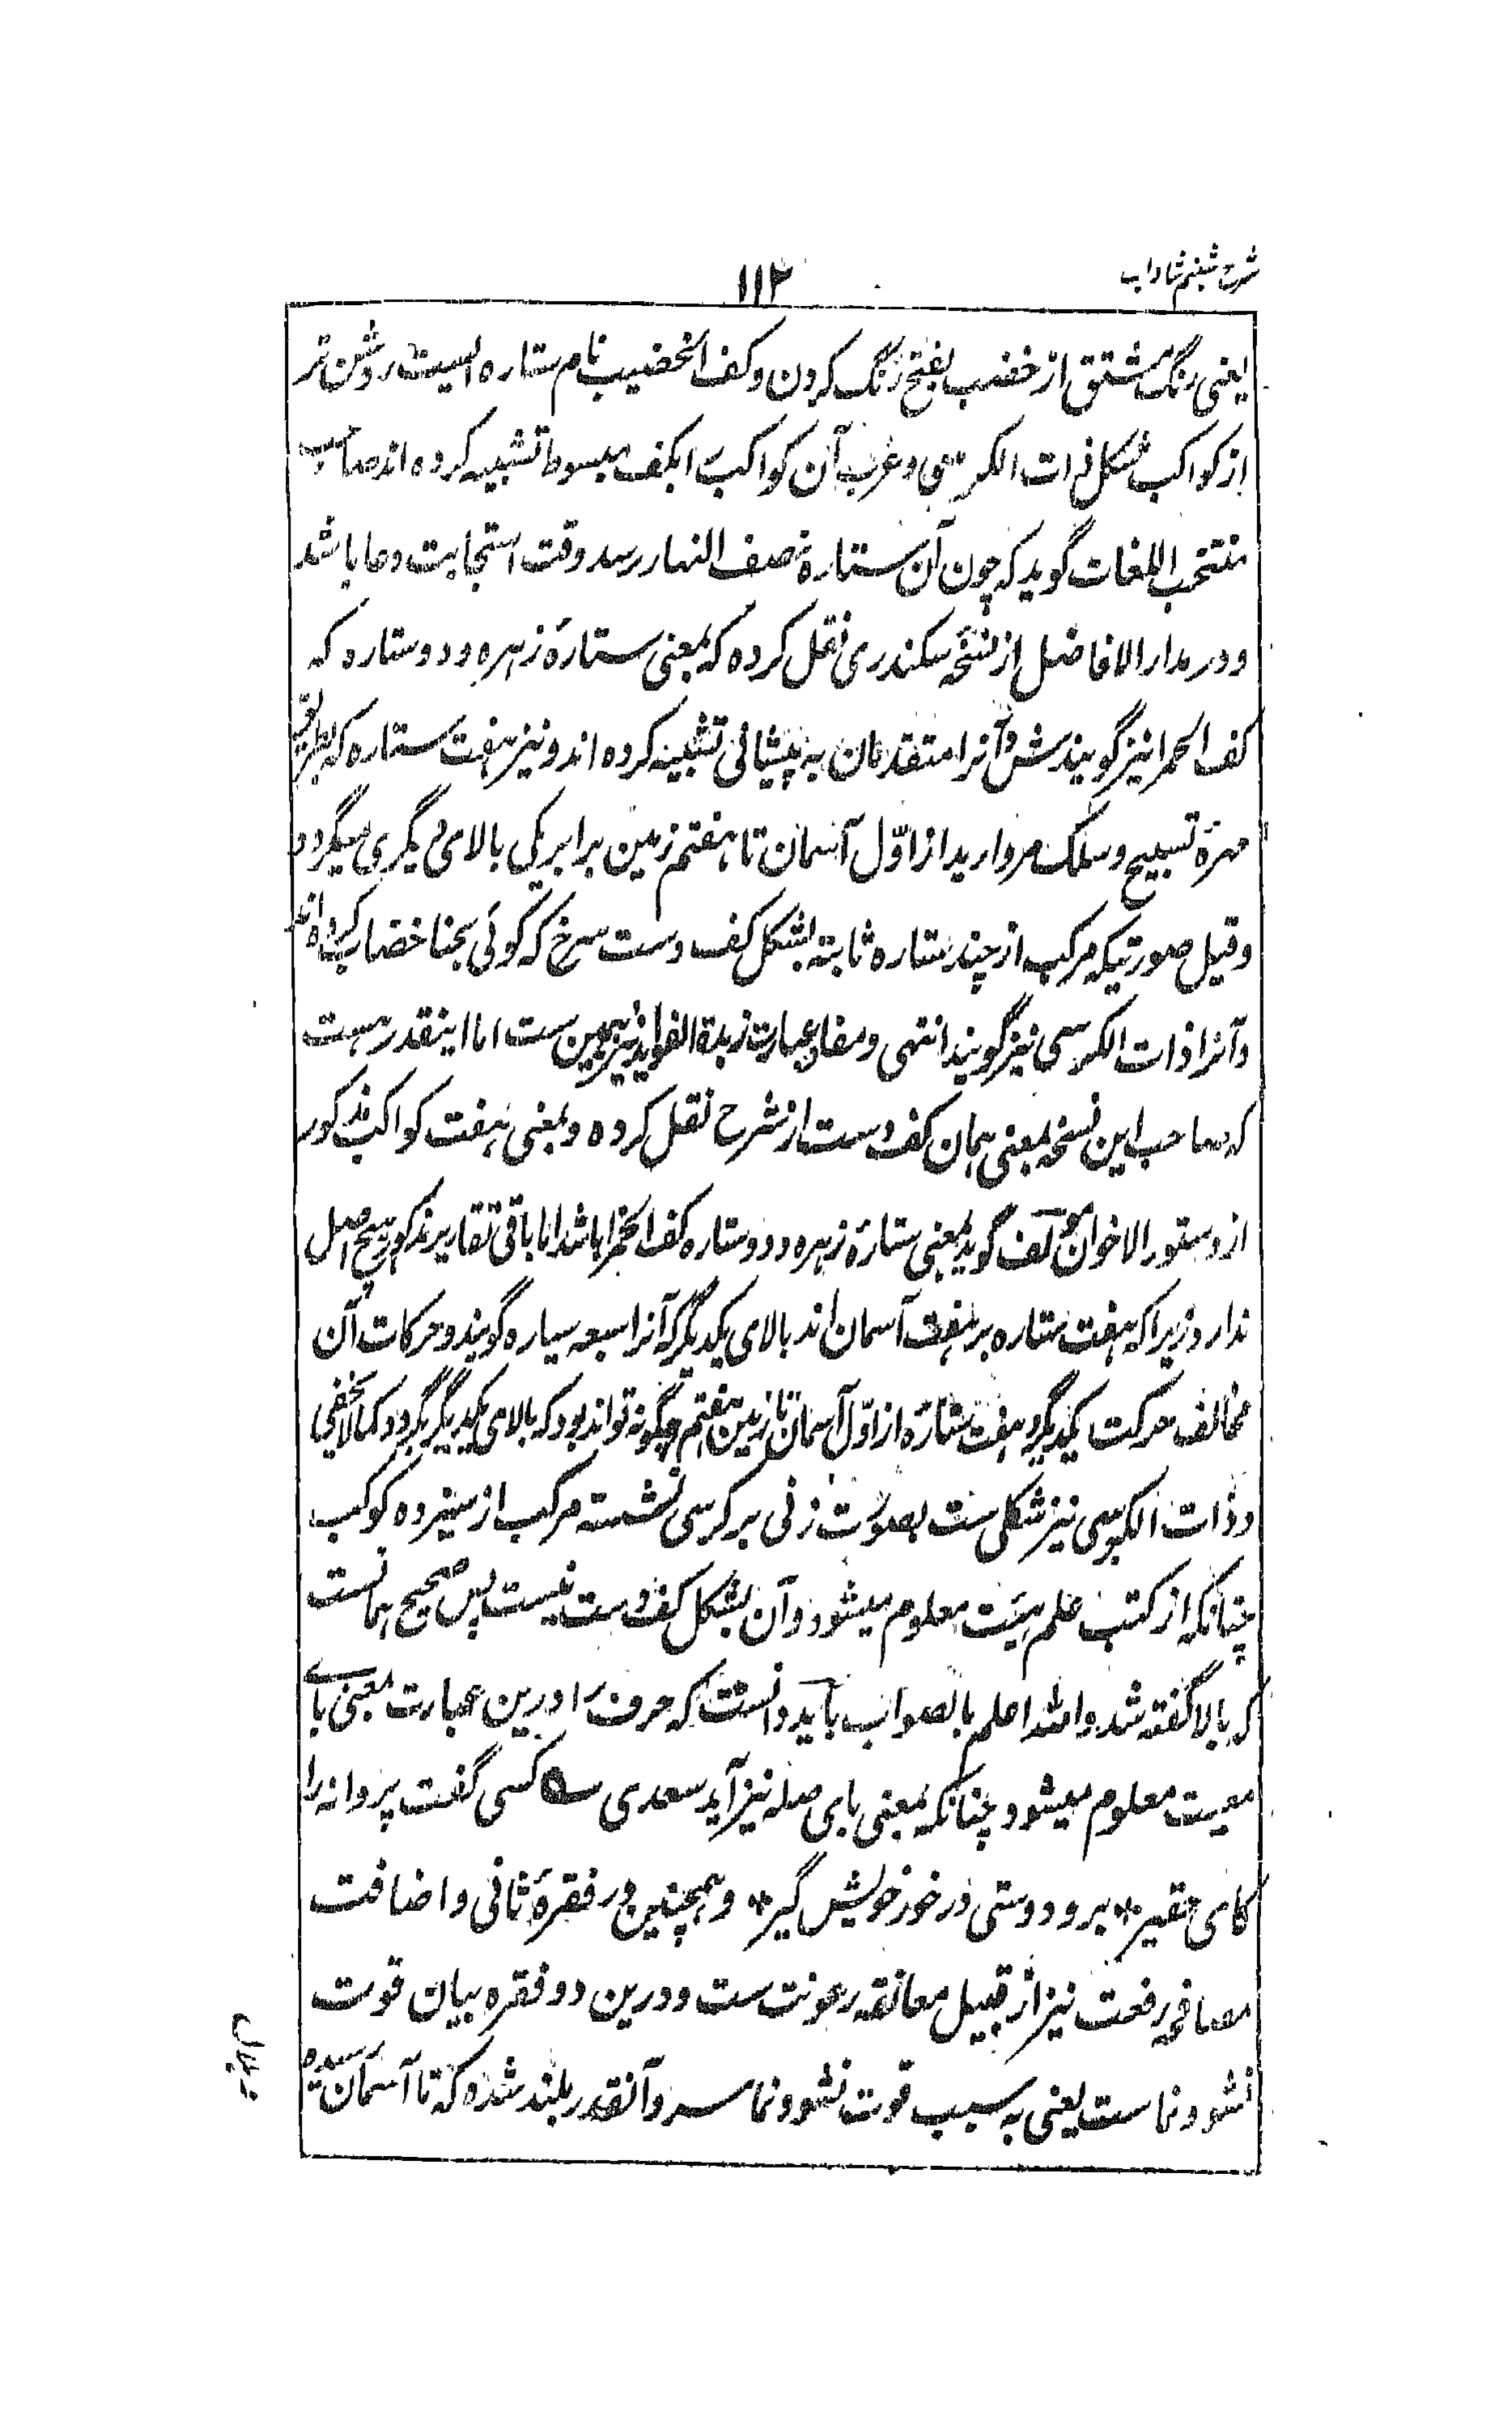 شرح شبنم شاداب
۱۱۲
یعنی رنگ مشتق از خضب بفتح رنگ کردن و کف الخضیب نام ستاره ایست روشن تر
از کواکب شکل ذات الکرسی و عرب آن کواکب را بکف مبسوط تشبیه کرده اند صاحب
منتخب اللغات گوید که چون آن ستاره بنصف النهار رسد وقت استجابت دعا باشد
و در مدار الافاضل از نسخه سکندری نقل کرده که بمعنی ستارهٔ زهره و دو ستاره که
کف الحمرا نیز گویندش و آنرا متقدمان به پیشانی تشبیه کرده اند و نیز هفت ستاره که بطریق
مهرهٔ تسبیح و سلک مروارید از اوّل آسمان تا هفتم زمین برابر یکی بالای دیگری میگردد
و قیل صورتیکه مرکب از چند ستاره ثابته بشکل کف دست سرخ که گوئی بحنا خضاب کرده اند
و آنرا ذات الکرسی نیز گویند انتهی و مفاد عبارت زبدة الفواید نیز همین ست اما اینقدر هست
که صاحب این نسخه بمعنی همان کف دست از شرح نقل کرده و بمعنی هفت کواکب مذکور
از دستور الاخوان کف گوید بمعنی ستارهٔ زهره و دو ستاره کف الخضرا باشد اما باقی تقاریر مذکور هیچ اصل
ندارد زیرا که هفت ستاره بر هفت آسمان اند بالای یکدیگر که آنرا سبعه سیاره گویند و حرکات آن
مخالف حرکت یکدیگر و هفت ستاره از اوّل آسمان تا زمین هفتم چگونه تواند بود که بالای یکدیگر بگردد کما لا یخفی
و ذات الکرسی نیز شکلی ست بصورت زنی بر کرسی نشسته مرکب از سیزده کوکب
چنانکه از کتب علم هیئت معلوم میشود و آن بشکل کف دست نیست پس صحیح همانست
که بالا گفته شد والله اعلم بالصواب باید دانست که حرف را درین عبارت بمعنی بای
معیت معلوم میشود چنانکه بمعنی بای صله نیز آید سعدی ؎ کسی گفت پروانه را
کای حقیر * برو دوستی در خور خویش گیر * و همچنین در فقرهٔ ثانی و اضافت
مصافحه رفعت نیز از قبیل معانقه رعونت ست و درین دو فقره بیان قوت
نشو و نماست یعنی به سبب قوت نشو و نما سرو آنقدر بلند شده که تا آسمان رسیده